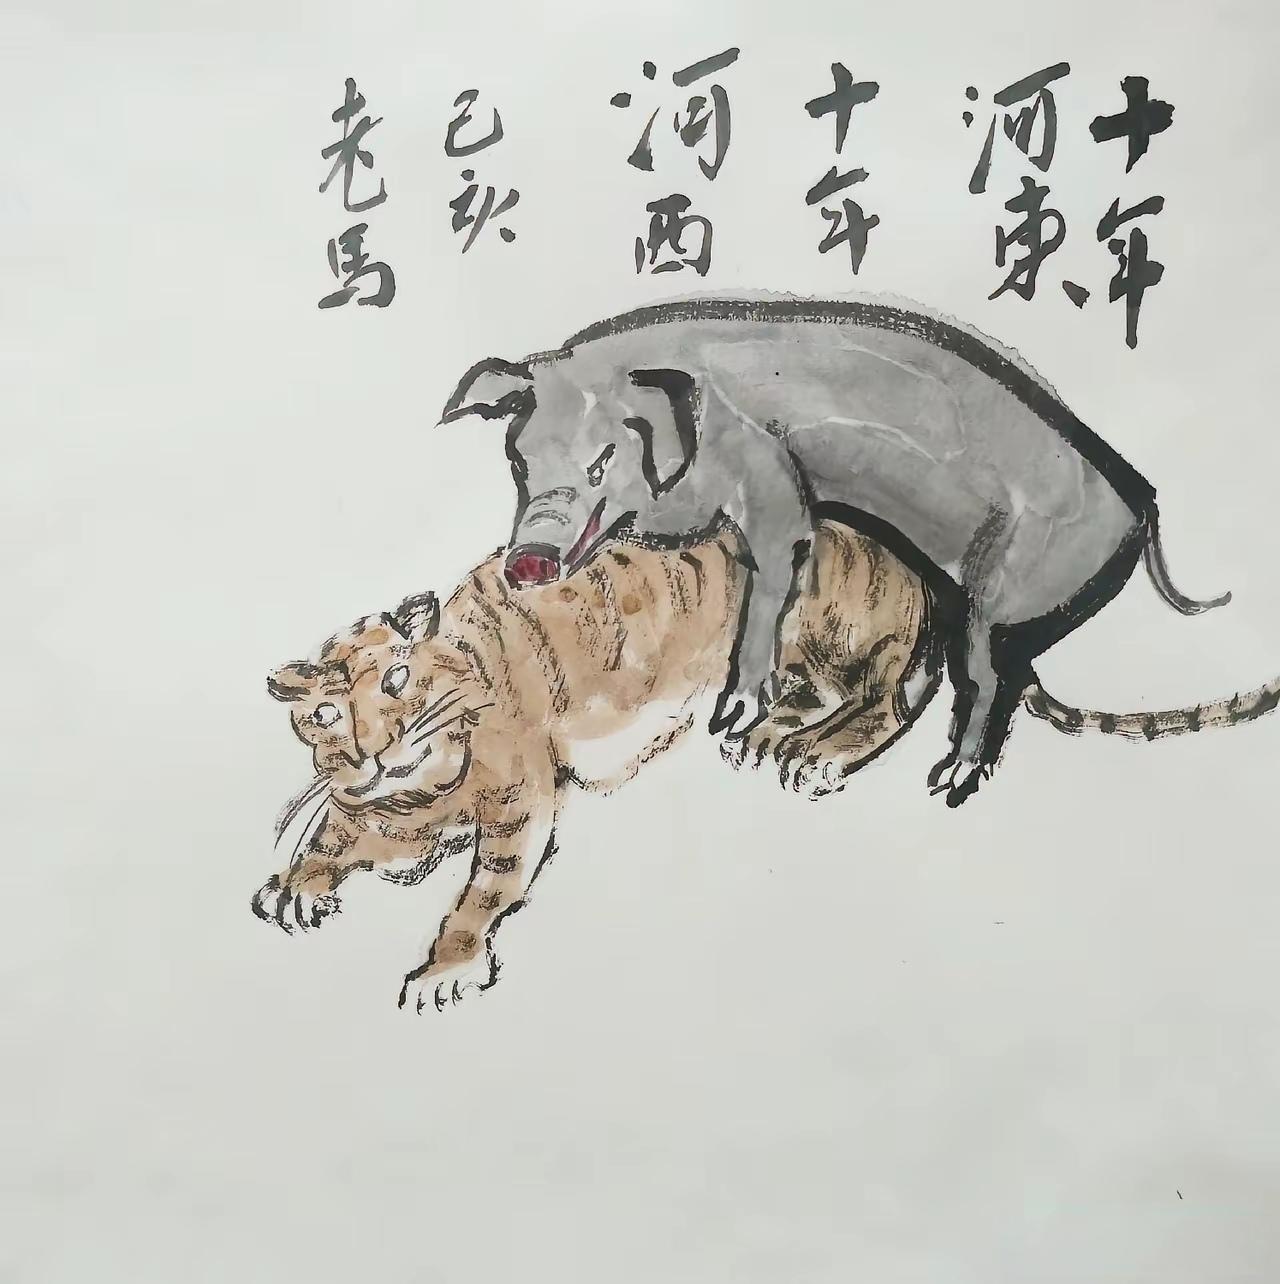 十年
河東
十年
河西
己亥
老馬